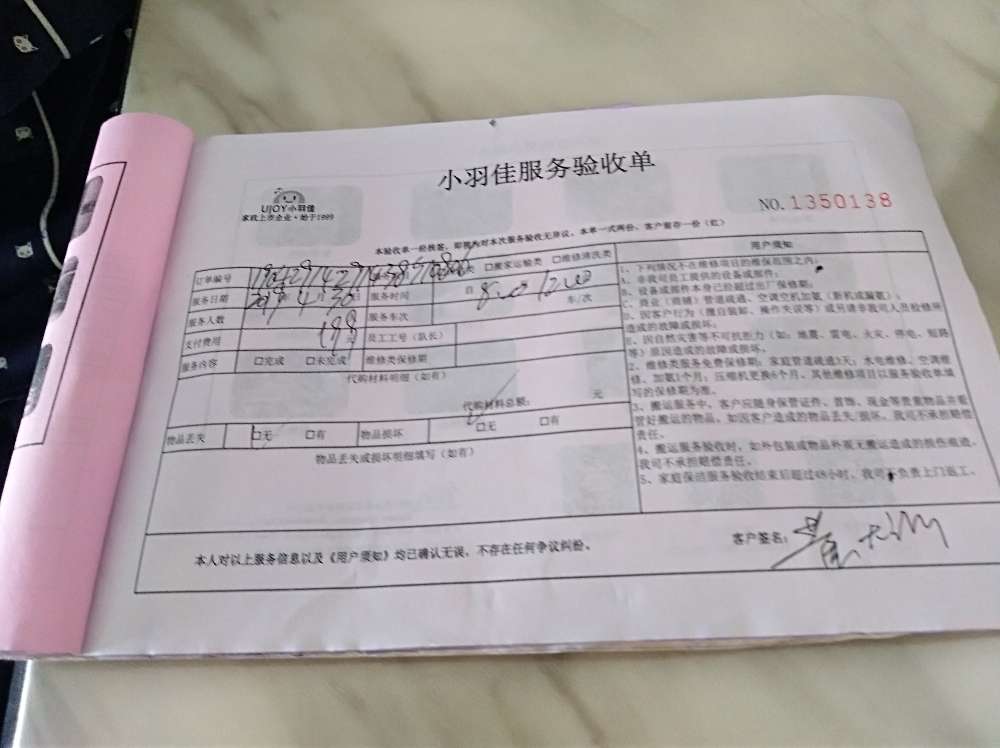 小羽佳服务验收单
UJOY小羽佳
家政上步企业·始于1999
NO.1350138
本验收单一经换签，即视为对本次服务验收无异议，本单一式两份，客户留存一份（红）
订单编号 类 □搬家运输类 □维修清洗类
服务日期 2019年4月30 服务时间 自 8:00 12:00
服务人数 服务车次 车/次
支付费用 198元 员工工号（队长）
服务内容 □完成 □未完成 维修类保修期
代购材料明细（如有）
代购材料总额： 元
物品丢失 □无 □有 物品损坏 □无 □有
物品丢失或损坏明细填写（如有）
用户须知
1、下列情况不在维修项目的维保范围之内：
A、非我司员工提供的设备或部件；
B、设备或部件本身已经超过出厂保修期；
C、商业（商铺）管道疏通、空调空机加氨（新机或漏氨）；
D、因客户行为（擅自装卸、操作失误等）或另请非我司人员检修所
造成的故障或损坏；
E、因自然灾害等不可抗拒力（如：地震、雷电、火灾、停电、短路
等）原因造成的故障或损坏。
2、维修类服务免费保修期：家庭管道疏通3天；水电维修、空调维
修、加氨1个月；压缩机更换6个月。其他维修项目以服务验收单填
写的保修期为准。
3、搬运服务中，客户应随身保管证件、首饰、现金等贵重物品并看
管好搬运的物品，如因客户造成的物品丢失/损坏，我司不承担赔偿
责任。
4、搬运服务验收时，如外包装或物品外观无搬运造成的损伤痕迹，
我司不承担赔偿责任。
5、家庭保洁服务验收结束后超过48小时，我司不负责上门返工。
本人对以上服务信息以及《用户须知》均已确认无误，不存在任何争议纠纷。
客户签名：